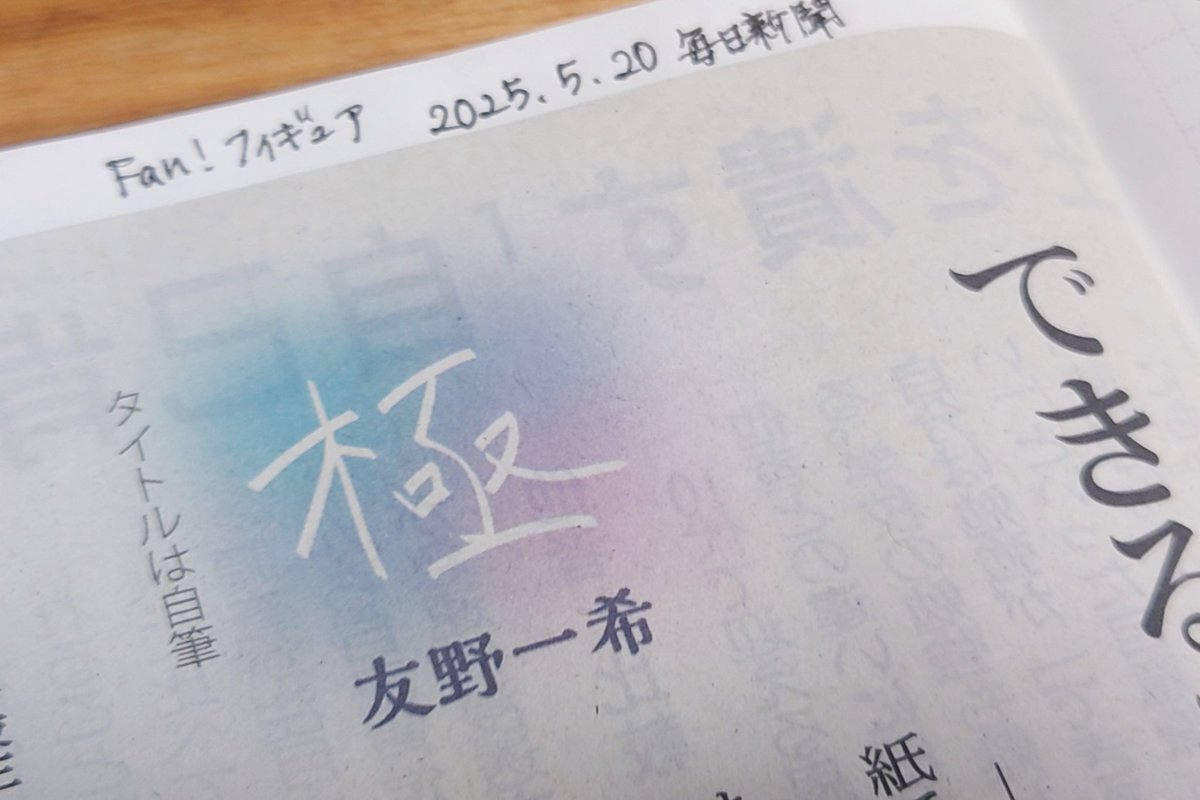 Fan! フィギュア 2025.5.20 毎日新聞
できる
極
友野一希
タイトルは自筆
紙